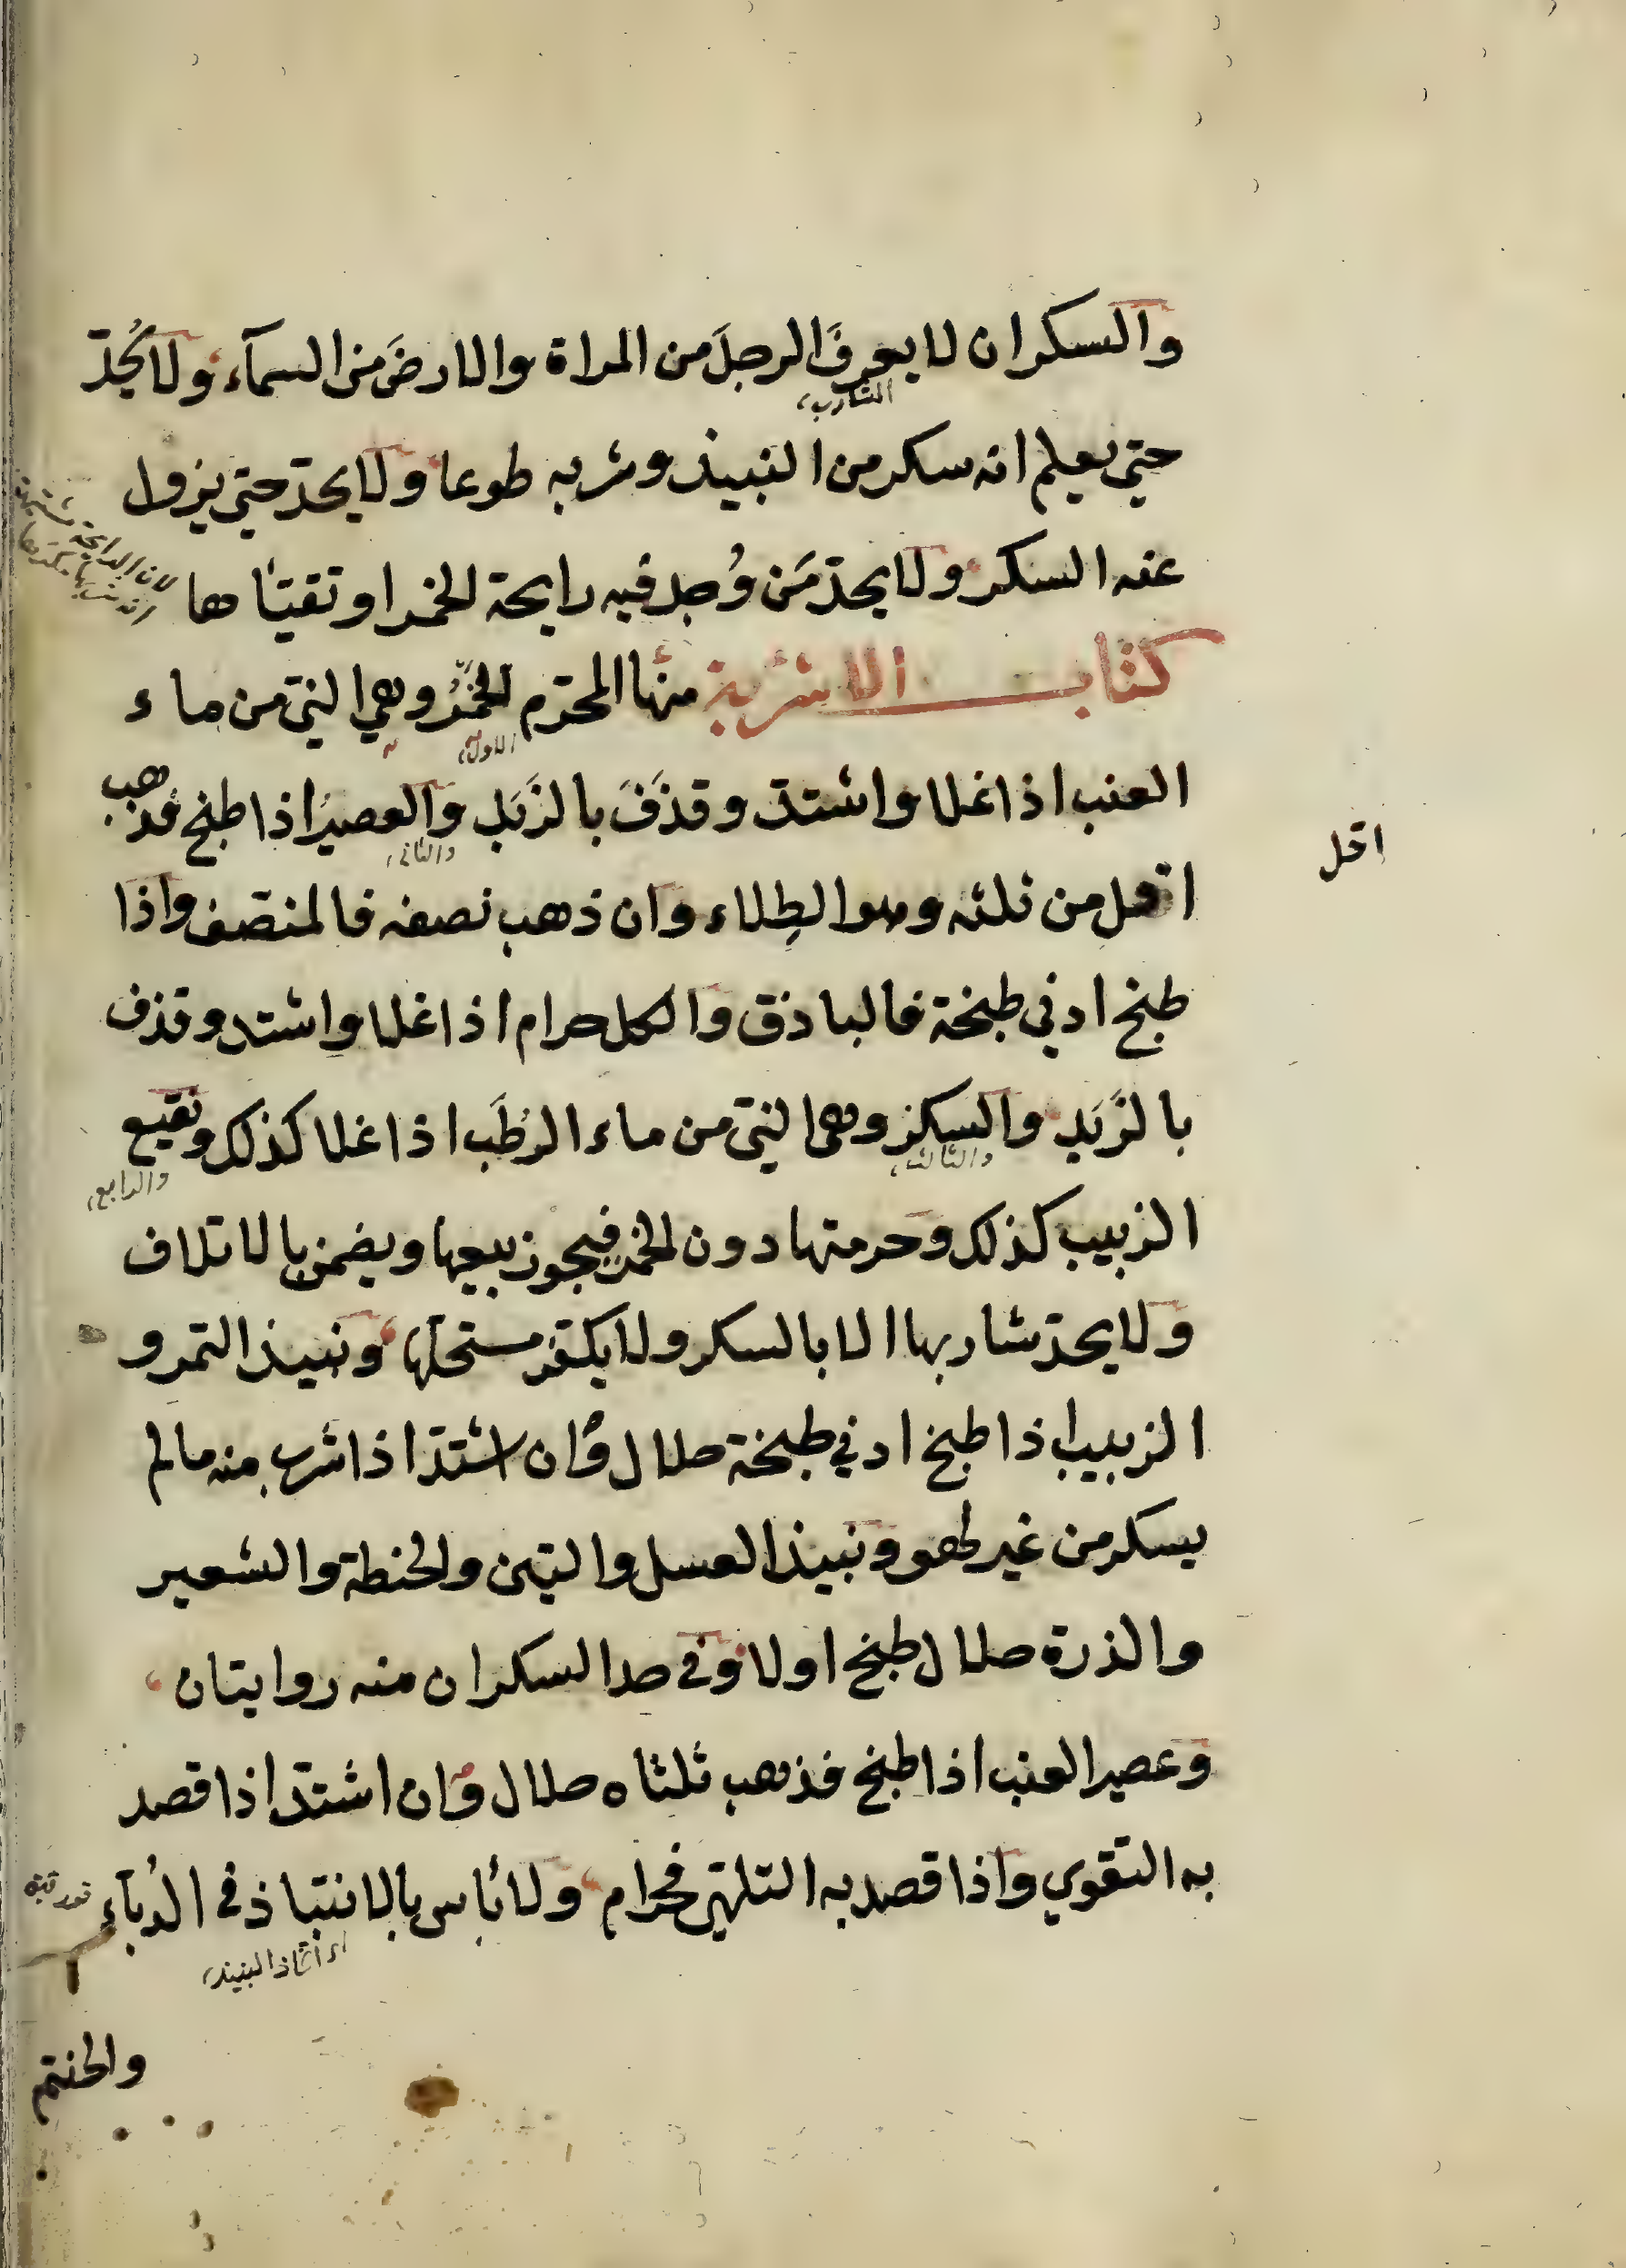 والسكران لا يعرفَ الرجلَ من المراة والارضَ من السمآء ولا يُحدّ
الشارب
حتي يعلم انه سكر من النبيذ وشربه طوعا ولا يحدّ حتي يزول
عنه السكر ولا يحدّ مَن وُجد فيه رايحة الخمر او تقيئاها
لان الرايحة
كتاب الاشربة منها المحرّم الخمرُ وهي النيّ من ماء
الاول
العنب اذا غلا واشتدّ وقذَفَ بالزَبَدِ والعصيرُ اذا طبخ فذهب
والثاني
اقل من ثلثه وهو الطِلاء وان ذهب نصفه فالمنصّف واذا
اقل
طبخ ادني طبخة فالباذق والكل حرام اذا غلا واشتد وقذف
بالزَبَدِ والسكر وهي النيّ من ماء الرُطَب اذا غلا كذلك ونقيع
والثالث
والرابع
الزبيب كذلك وحرمتها دون الخمر فيجوز بيعها ويضمن بالاتلاف
ولا يحدّ شاربها الا بالسكر ولا يكفّر مستحلّها ونبيذ التمر و
الزبيب اذا طبخ ادني طبخة حلال وان اشتدّ اذا شرب منه ما لم
يسكر من غير لهو ونبيذ العسل والتين والحنطة والشعير
والذرة حلال طبخ اولا وفي حد السكران منه روايتان
وعصير العنب اذا طبخ فذهب ثلثاه حلال وان اشتدّ اذا قصد
به التقوي واذا قصد به التلهّي فحرام ولا بأس بالانتباذ في الدُبآء
اتخاذ النبيذ
والحنتم